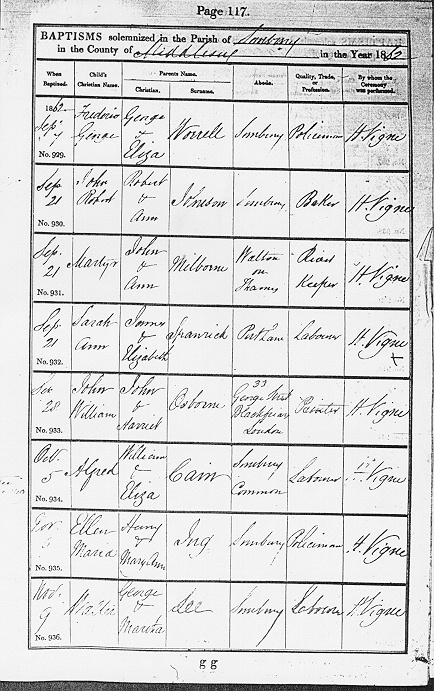 Page 117.
BAPTISMS solemnized in the Parish of Sunbury
in the County of Middlesex in the Year 1862
When Baptized. Child's Christian Name. Parents Name. Abode. Quality, Trade, or Profession. By whom the Ceremony was performed.
Christian. Surname.
1862 Sep. 7 No. 929. Frederic George George & Eliza Worrell Sunbury Policeman H. Vigne
Sep. 21 No. 930. John Robert Robert & Ann Johnson Sunbury Baker H. Vigne
Sep. 21 No. 931. John & Ann Melborne Walton on Thames River Keeper H. Vigne
Sep. 21 No. 932. Sarah Ann James & Elizabeth Labourer H. Vigne
28 No. 933. John William John & Harriet Osborne 33 George Street Blackfriars London H. Vigne
Oct. 5 No. 934. Alfred William & Eliza Cain Sunbury Common Labourer Vigne
No. 935. Ellen Maria Henry & Mary Ann Ing Sunbury Policeman H. Vigne
Nov. 9 No. 936. George & Martha Lee Sunbury Labourer H. Vigne
g g